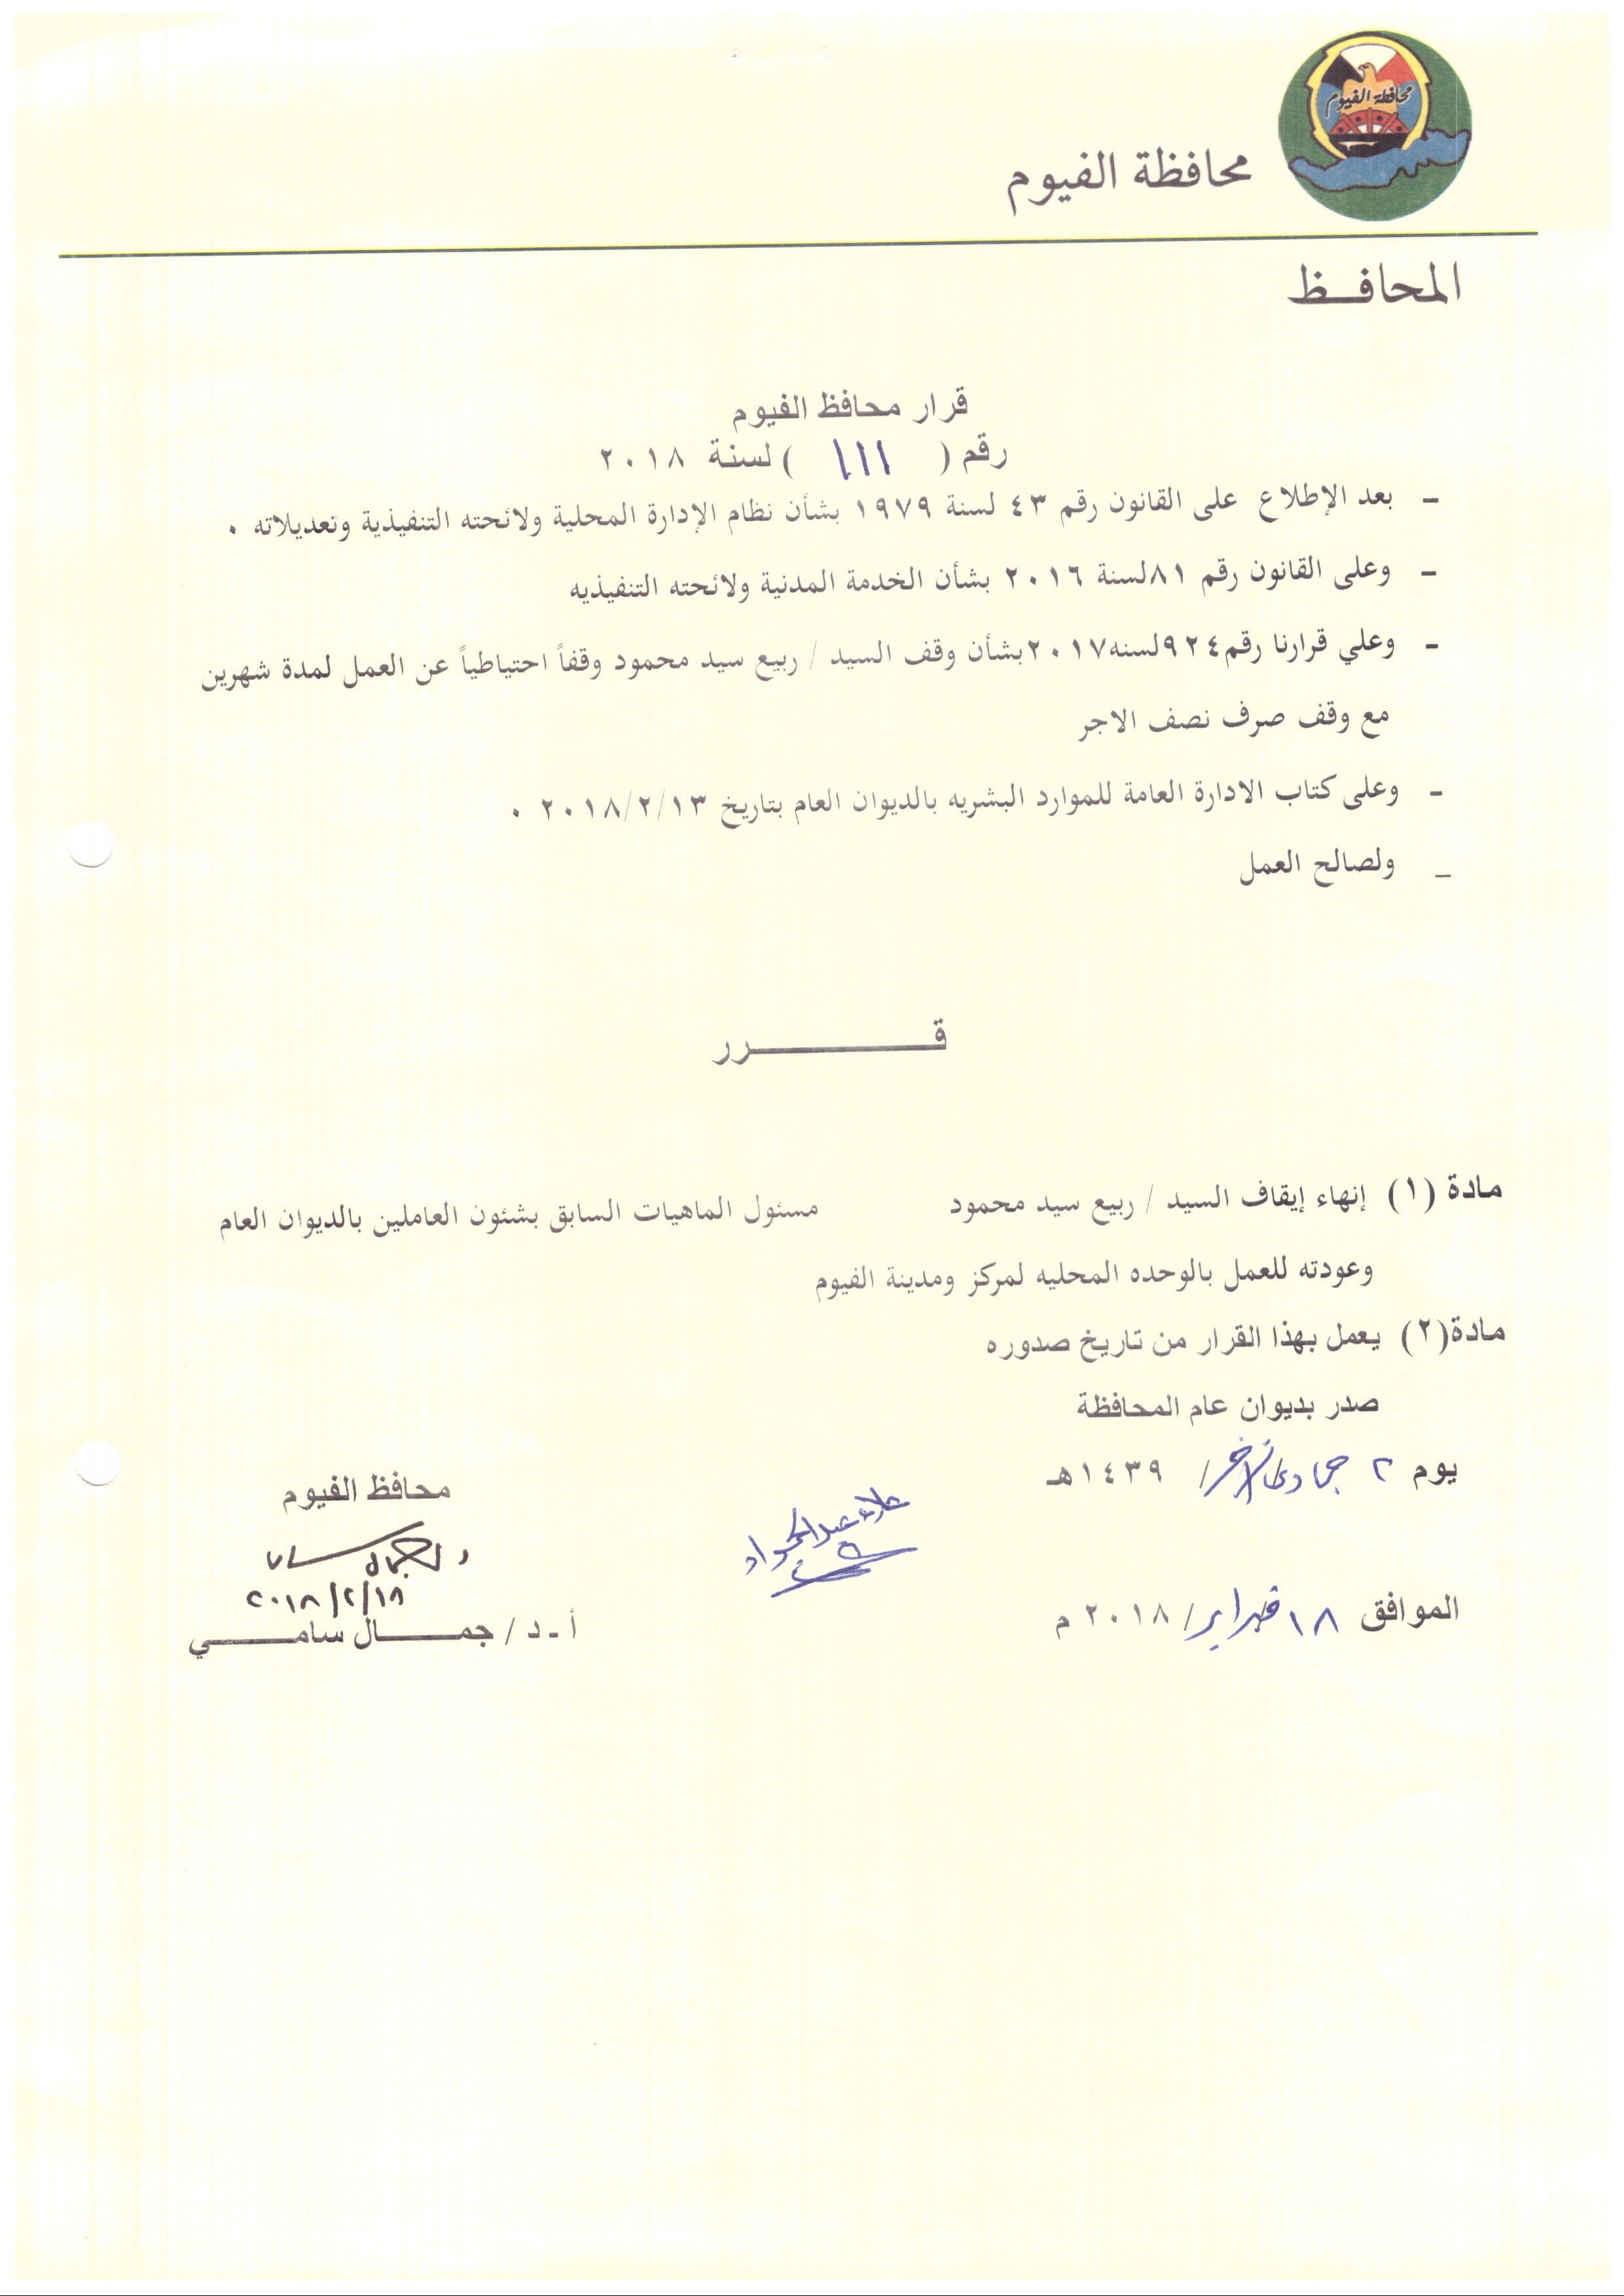 محافظة الفيوم
محافظة الفيوم
المحافـــظ
قرار محافظ الفيوم
رقم ( ١١١ ) لسنة ٢٠١٨
- بعد الإطلاع على القانون رقم ٤٣ لسنة ١٩٧٩ بشأن نظام الإدارة المحلية ولائحته التنفيذية وتعديلاته ٠
- وعلى القانون رقم ٨١لسنة ٢٠١٦ بشأن الخدمة المدنية ولائحته التنفيذيه
- وعلي قرارنا رقم٩٢٤لسنه٢٠١٧بشأن وقف السيد / ربيع سيد محمود وقفاً احتياطياً عن العمل لمدة شهرين
مع وقف صرف نصف الاجر
- وعلى كتاب الادارة العامة للموارد البشريه بالديوان العام بتاريخ ٢٠١٨/٢/١٣ ٠
_ ولصالح العمل
قـــــــــــرر
مادة (١) إنهاء إيقاف السيد / ربيع سيد محمود مسئول الماهيات السابق بشئون العاملين بالديوان العام
وعودته للعمل بالوحده المحليه لمركز ومدينة الفيوم
مادة(٢) يعمل بهذا القرار من تاريخ صدوره
صدر بديوان عام المحافظة
يوم ٢ جمادى الآخر/ ١٤٣٩هـ
محافظ الفيوم
علاء عبدالجواد
٢٠١٨/٢/١٨
الموافق ١٨ فبراير/ ٢٠١٨ م
أ ـ د / جمـــــال سامـــــــي